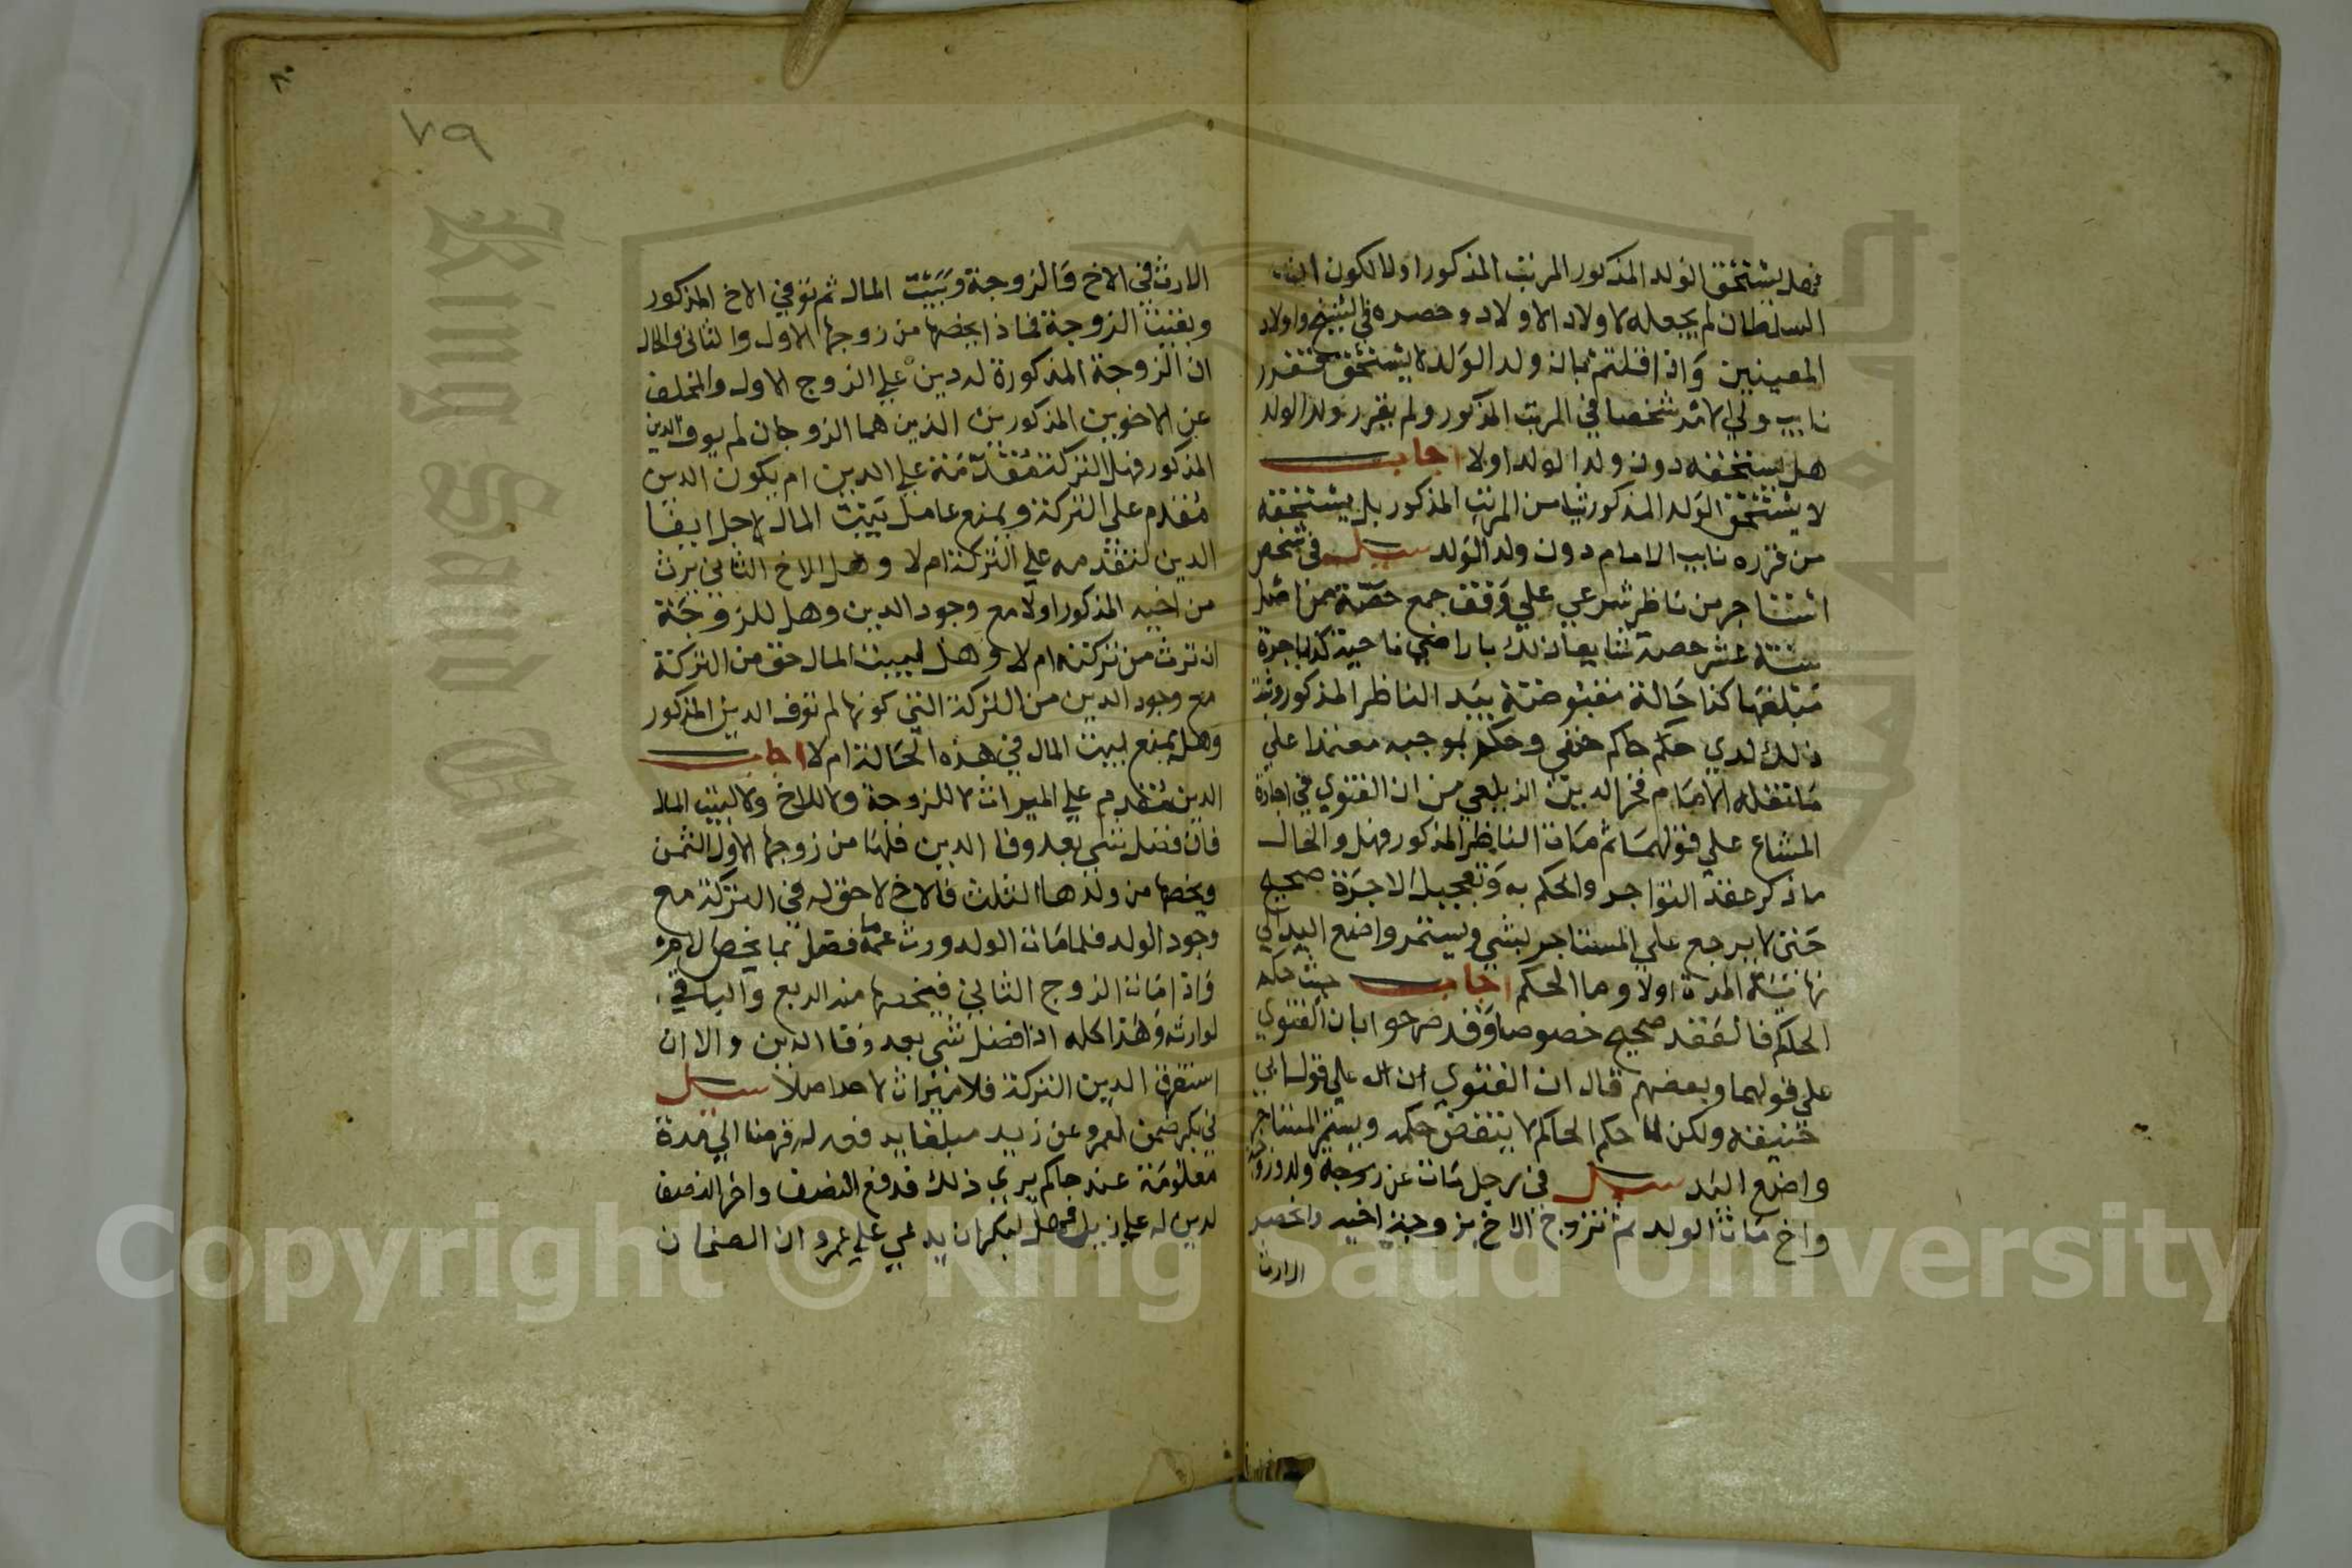 فهل يستحق الولد المذكور المرتب المذكور اولا لكون
السلطان لم يجعله لاولاد الاولاد وحصره في الشيخ واولاد
المعينين واذا قلتم بان ولد الولد لا يستحق فقرر
نايب ولي الامر شخصا في المرتب المذكور ولم يقرر ولد الولد
هل يستحقه دون ولد الولد اولا اجاب
لا يستحق الولد المذكور شيا من المرتب المذكور بل يستحقه
من قرره نايب الامام دون ولد الولد سيل في شخص
استاجر من ناظر شرعي علي وقف جمع حصة
ستة عشر حصة شايعا ذلك باراضي ناحية كذا باجرة
مبلغها كذا حالة مقبوضة بيد الناظر المذكور وثبت
ذلك لدي حكم حاكم حنفي وحكم بموجبه معتمدا علي
ما نقله الامام فخر الدين الزيلعي من ان الفتوي في اجارة
المشاع علي قولهما ثم مات الناظر المذكور فهل والحال
ما ذكر عقد التواجر والحكم به وتعجيل الاجرة صحيح
حتي لا يرجع علي المستاجر بشي ويستمر واضع اليد الي
نهاية المدة اولا وما الحكم اجاب حيث حكم
الحاكم فالعقد صحيح خصوصا وقد صرحوا بان الفتوي
علي قولهما وبعضهم قال ان الفتوي علي قول ابي
حنيفة ولكن لما حكم الحاكم لا ينتقض حكمه ويستمر المستاجر
واضع اليد سيل في رجل مات عن زوجة وولد
واخ مات الولد ثم تزوج الاخ بزوجة اخيه وانحصر
الارث
٨٠
٧٩
الارث في الاخ والزوجة وبيت المال ثم توفي الاخ المذكور
وبقيت الزوجة فماذا يخصها من زوجها الاول والثاني والحال
ان الزوجة المذكورة لها دين علي الزوج الاول والمخلف
عن الاخوين المذكورين الذين هما الزوجان لم يوف الدين
المذكور فهل التركة مقدمة علي الدين ام يكون الدين
مقدم علي التركة ويمنع عامل بيت المال لاجل ايفا
الدين لتقدمه علي التركة ام لا وهل الاخ الثاني يرث
من اخيه المذكور اولا مع وجود الدين وهل للزوجة
ان ترث من تركته ام لا وهل لبيت المال حق من التركة
مع وجود الدين من التركة التي كونها لم توف الدين المذكور
وهل يمنع لبيت المال في هذه الحالة ام لا اجاب
الدين مقدم علي الميراث لا للزوجة ولا للاخ ولا لبيت المال
فان فضل شي بعد وفا الدين فلها من زوجها الاول الثمن
ويخصها من ولدها الثلث فالاخ لا حق له في التركة مع
وجود الولد فلما مات الولد ورث عمه ما فضل عما يخص لامه
واذا مات الزوج الثاني فيخصها منه الربع والباقي
لوارثه وهذا كله اذا فضل شي بعد وفا الدين والا ان
استغرق الدين التركة فلا ميراث لاحد اصلا سيل
في بكر ضمن لعمرو عن زيد مبلغا فرضا الي مدة
معلومة عند حاكم يري ذلك فدفع النصف واخر النصف
لدين له علي زيد فهل لبكر ان يدعي علي عمرو ان الضمان
Copyright © King Saud University
King Saud University